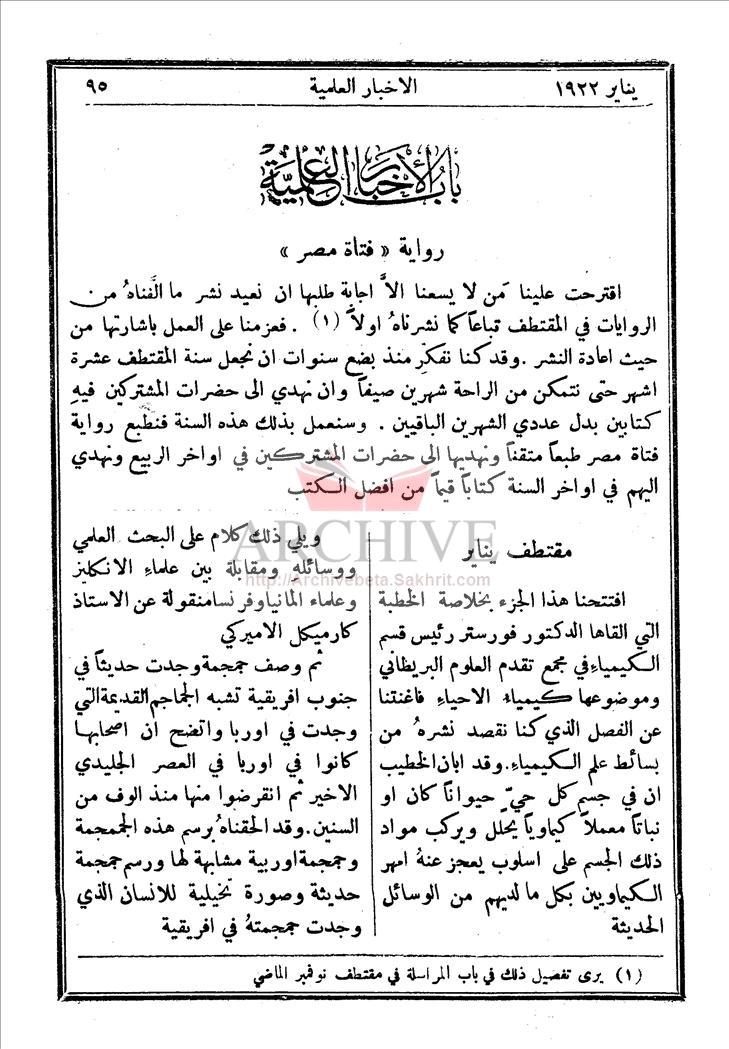 يناير ١٩٢٢
الاخبار العلمية
٩٥
باب الأخبار العلمية
رواية « فتاة مصر »
اقترحت علينا مَن لا يسعنا الاَّ اجابة طلبها ان نعيد نشر ما الَّفناهُ من
الروايات في المقتطف تباعاً كما نشرناهُ اولاً (١) . فعزمنا على العمل باشارتها من
حيث اعادة النشر . وقد كنا نفكّر منذ بضع سنوات ان نجعل سنة المقتطف عشرة
اشهر حتى نتمكن من الراحة شهرين صيفاً وان نهدي الى حضرات المشتركين فيهِ
كتابين بدل عددي الشهرين الباقيين . وسنعمل بذلك هذه السنة فنطبع رواية
فتاة مصر طبعاً متقناً ونهديها الى حضرات المشتركين في اواخر الربيع ونهدي
اليهم في اواخر السنة كتاباً قيماً من افضل الكتب
ARCHIVE
http://Archivebeta.Sakhrit.com
مقتطف يناير
افتتحنا هذا الجزء بخلاصة الخطبة
التي القاها الدكتور فورستر رئيس قسم
الكيمياء في مجمع تقدم العلوم البريطاني
وموضوعها كيمياء الاحياءِ فاغنتنا
عن الفصل الذي كنا نقصد نشرهُ من
بسائط علم الكيمياءِ. وقد ابان الخطيب
ان في جسم كل حيّ حيواناً كان او
نباتاً معملاً كيماوياً يحلل ويركب مواد
ذلك الجسم على اسلوب يعجز عنهُ امهر
الكيماويين بكل ما لديهم من الوسائل
الحديثة
ويلي ذلك كلام على البحث العلمي
ووسائلهِ ومقابلة بين علماءِ الانكليز
وعلماء المانيا وفرنسا منقولة عن الاستاذ
كارميكل الاميركي
ثم وصف جمجمة وجدت حديثاً في
جنوب افريقية تشبه الجماجم القديمة التي
وجدت في اوربا واتضح ان اصحابها
كانوا في اوربا في العصر الجليدي
الاخير ثم انقرضوا منها منذ الوف من
السنين. وقد الحقناهُ برسم هذه الجمجمة
وجمجمة اوربية مشابهة لها ورسم جمجمة
حديثة وصورة تخيلية للانسان الذي
وجدت جمجمتهُ في افريقية
(١) يرى تفصيل ذلك في باب المراسلة في مقتطف نوفمبر الماضي